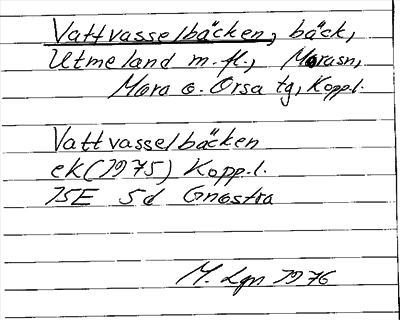 Vattvasselbäcken, bäck,
Utmeland m.fl., Morasn,
Mora o. Orsa tg, Kopp.l.
Vattvasselbäcken
ek(1975) Kopp.l.
15E 5d Gnostra
M. Lgn 1976